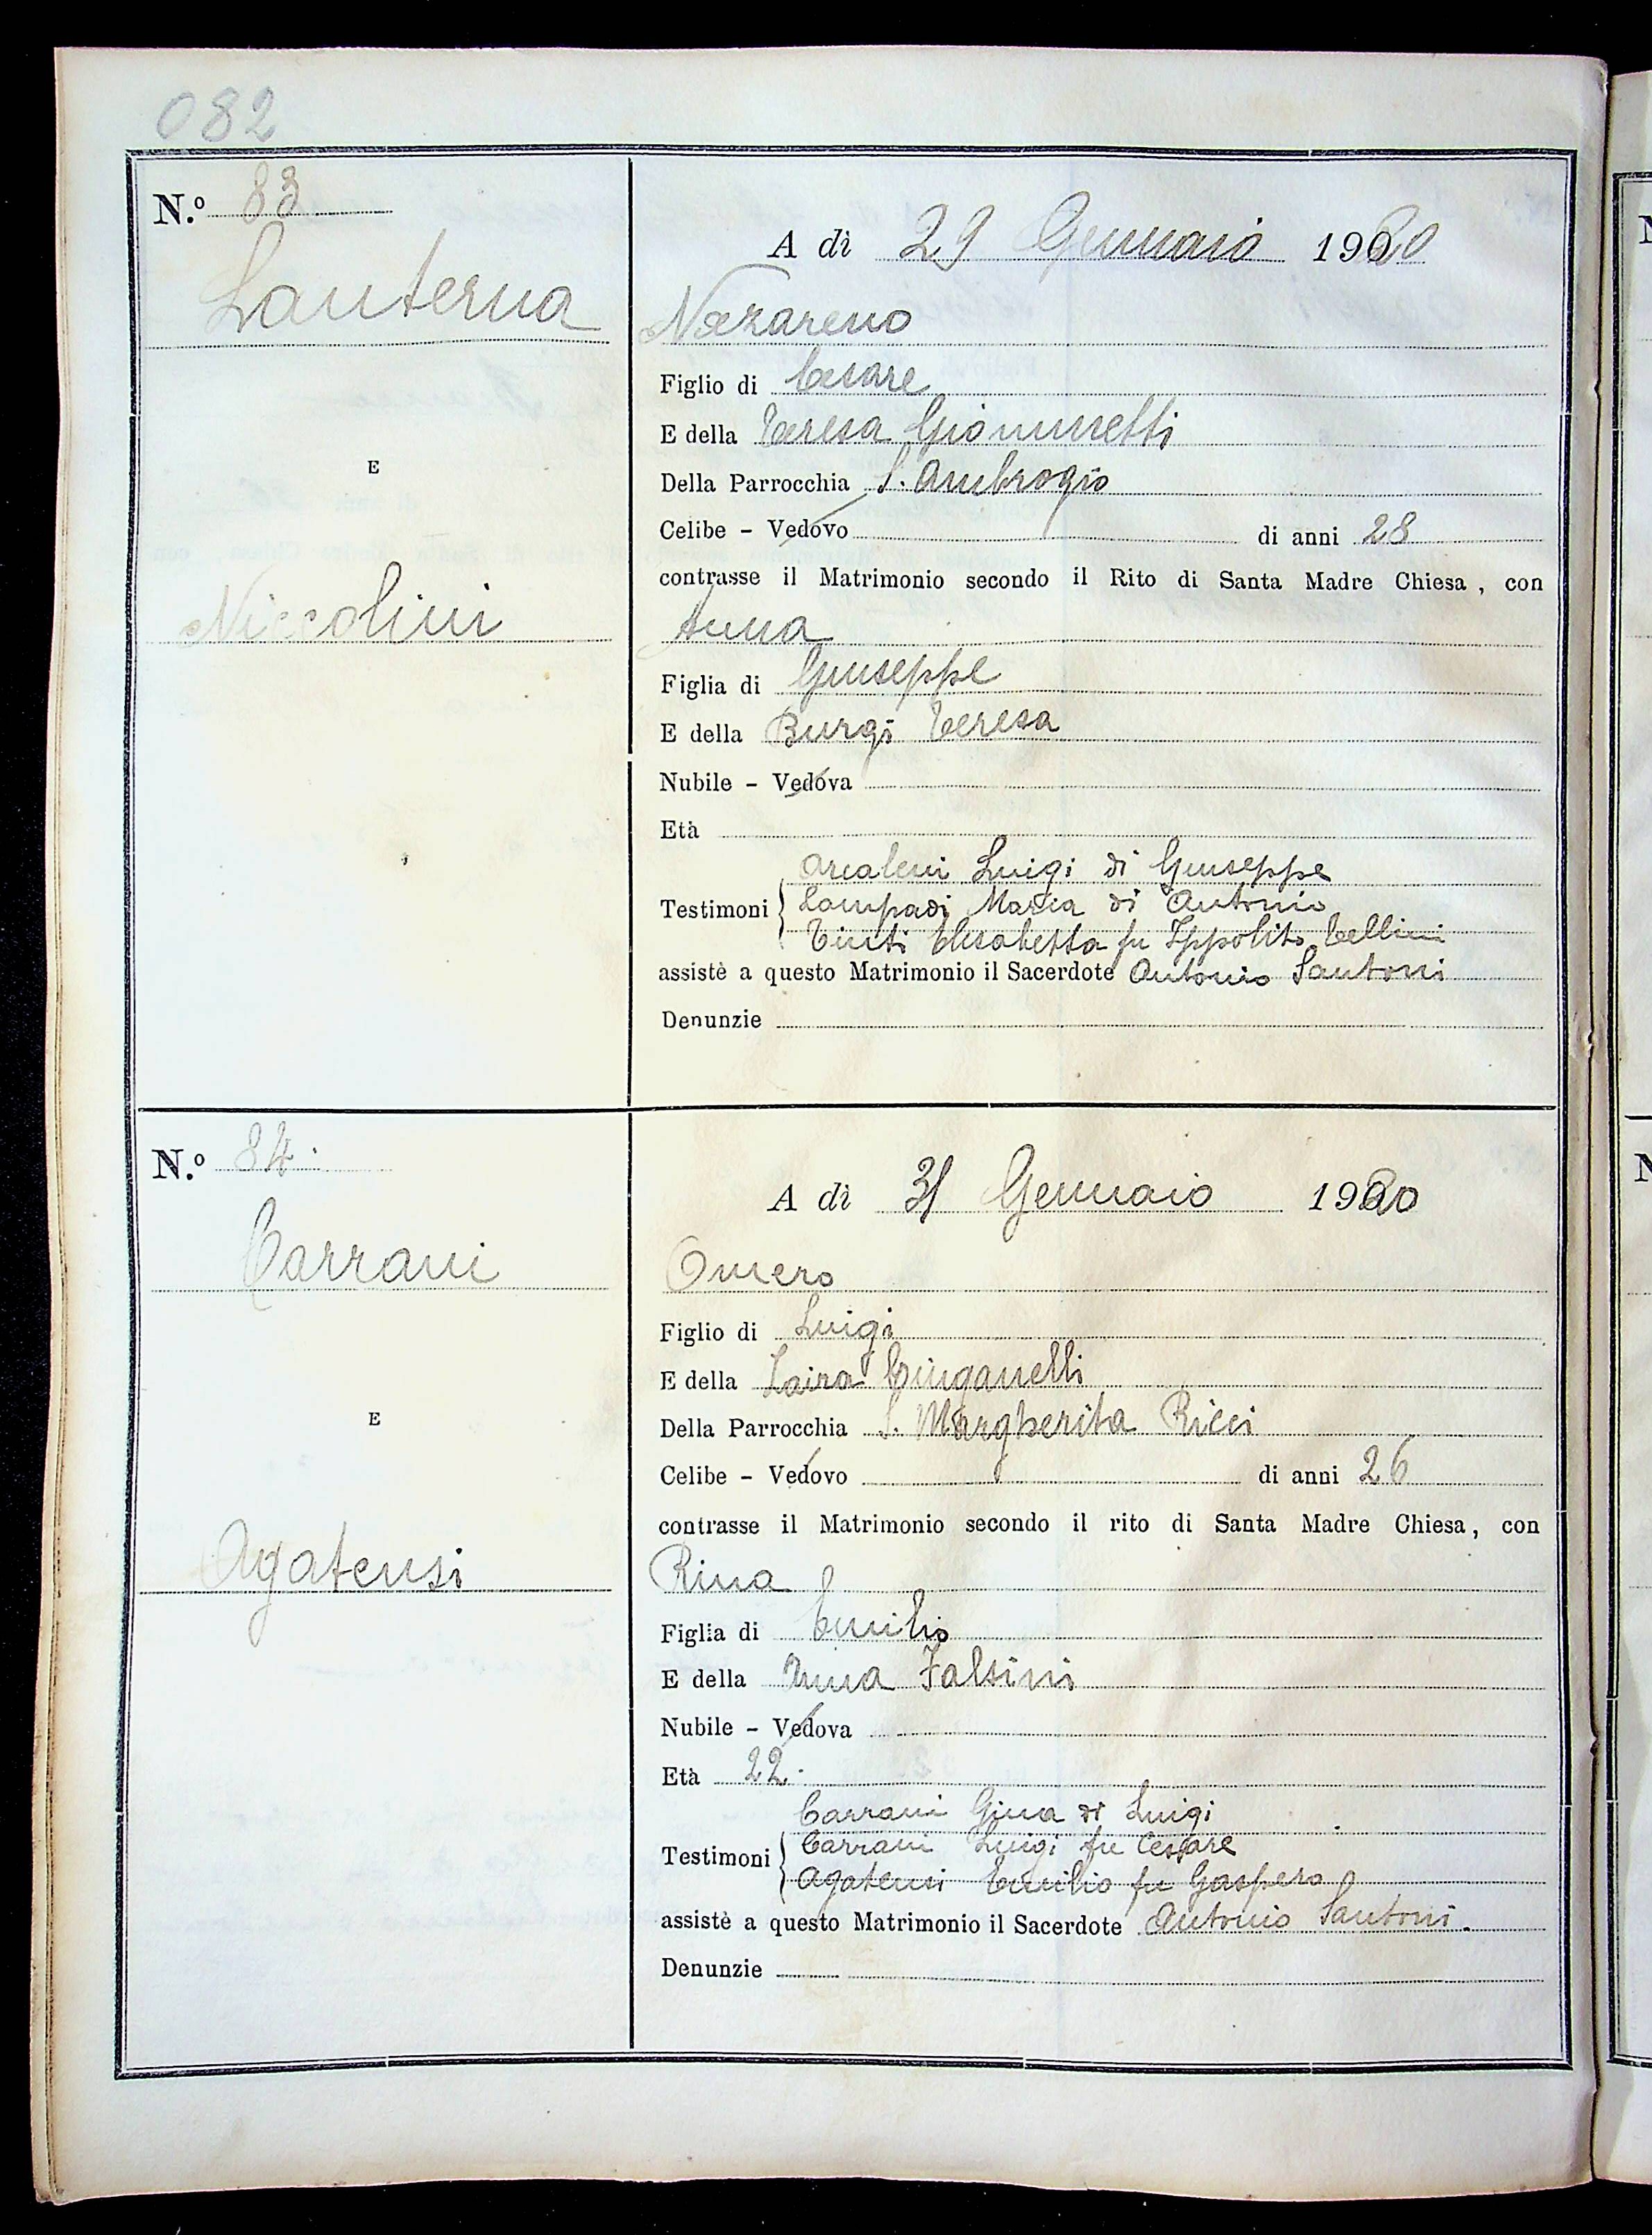 082
N.º 83
A dì 29 Gennaio 1920
Lanterna
Nazareno
Figlio di Cesare
E della Teresa Giommetti
E
Della Parrocchia S. Ambrogio
Celibe - Vedovo di anni 28
contrasse il Matrimonio secondo il Rito di Santa Madre Chiesa, con
Niccolini
Anna
Figlia di Giuseppe
E della Burgi Teresa
Nubile - Vedova
Età
Testimoni
Luigi di Giuseppe
Lampadi Maria di Antonio
Tinti Elisabetta fu Ippolito Cellini
assistè a questo Matrimonio il Sacerdote Antonio Santoni
Denunzie
N.º 84.
A dì 31 Gennaio 1920
Carrani
Omero
Figlio di Luigi
E della Zaira Cinganelli
E
Della Parrocchia S. Margherita Ricci
Celibe - Vedovo di anni 26
contrasse il Matrimonio secondo il rito di Santa Madre Chiesa, con
Agatensi
Rina
Figlia di Emilio
E della Anna Falsini
Nubile - Vedova
Età 22.
Testimoni
Carrani Gina di Luigi
Carrani Luigi fu Cesare
Agatensi Emilio fu Gaspero
assistè a questo Matrimonio il Sacerdote Antonio Santoni.
Denunzie